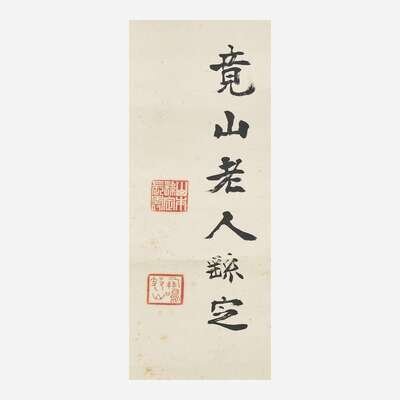 竟山老人繇定